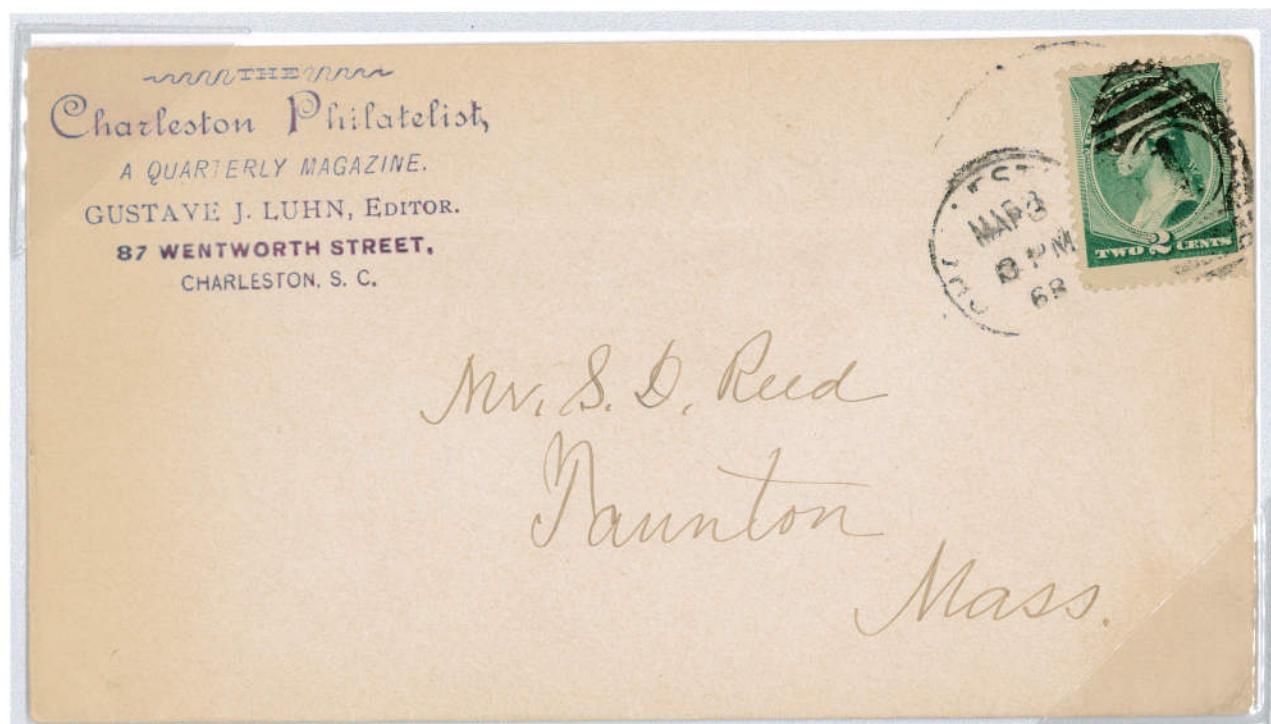 THE
Charleston Philatelist,
A QUARTERLY MAGAZINE.
GUSTAVE J. LUHN, EDITOR.
87 WENTWORTH STREET,
CHARLESTON, S. C.
MAR 3
PM
TWO 2 CENTS
Mr. S. D. Reed
Taunton
Mass.